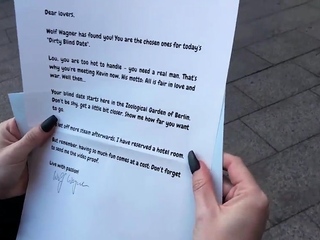 Dear lovers.
Wolf Wagner has found you! You are the chosen ones for today's
"Dirty Blind Date".
Lou, you are too hot to handle - you need a real man. That's
why you're meeting Kevin now. His motto: All is fair in love and
war. Well then...
Your blind date starts here in the Zoological Garden of Berlin.
Don't be shy, get a little bit closer. Show me how far you want
to go.
let off more steam afterwards, I have reserved a hotel room
But remember, having so much fun comes at a cost. Don't forget
to send me the video proof.
Live with passion!
Wolf Wagner